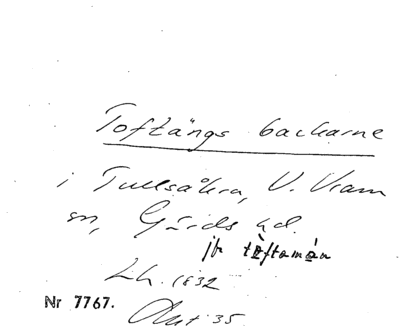 Toftängs backarne
i Tullsåkra, V. Vram
sn, Gärds hd.
jfr tòftamǻn
Lh. 1832
Nr 7767.
Akt 35